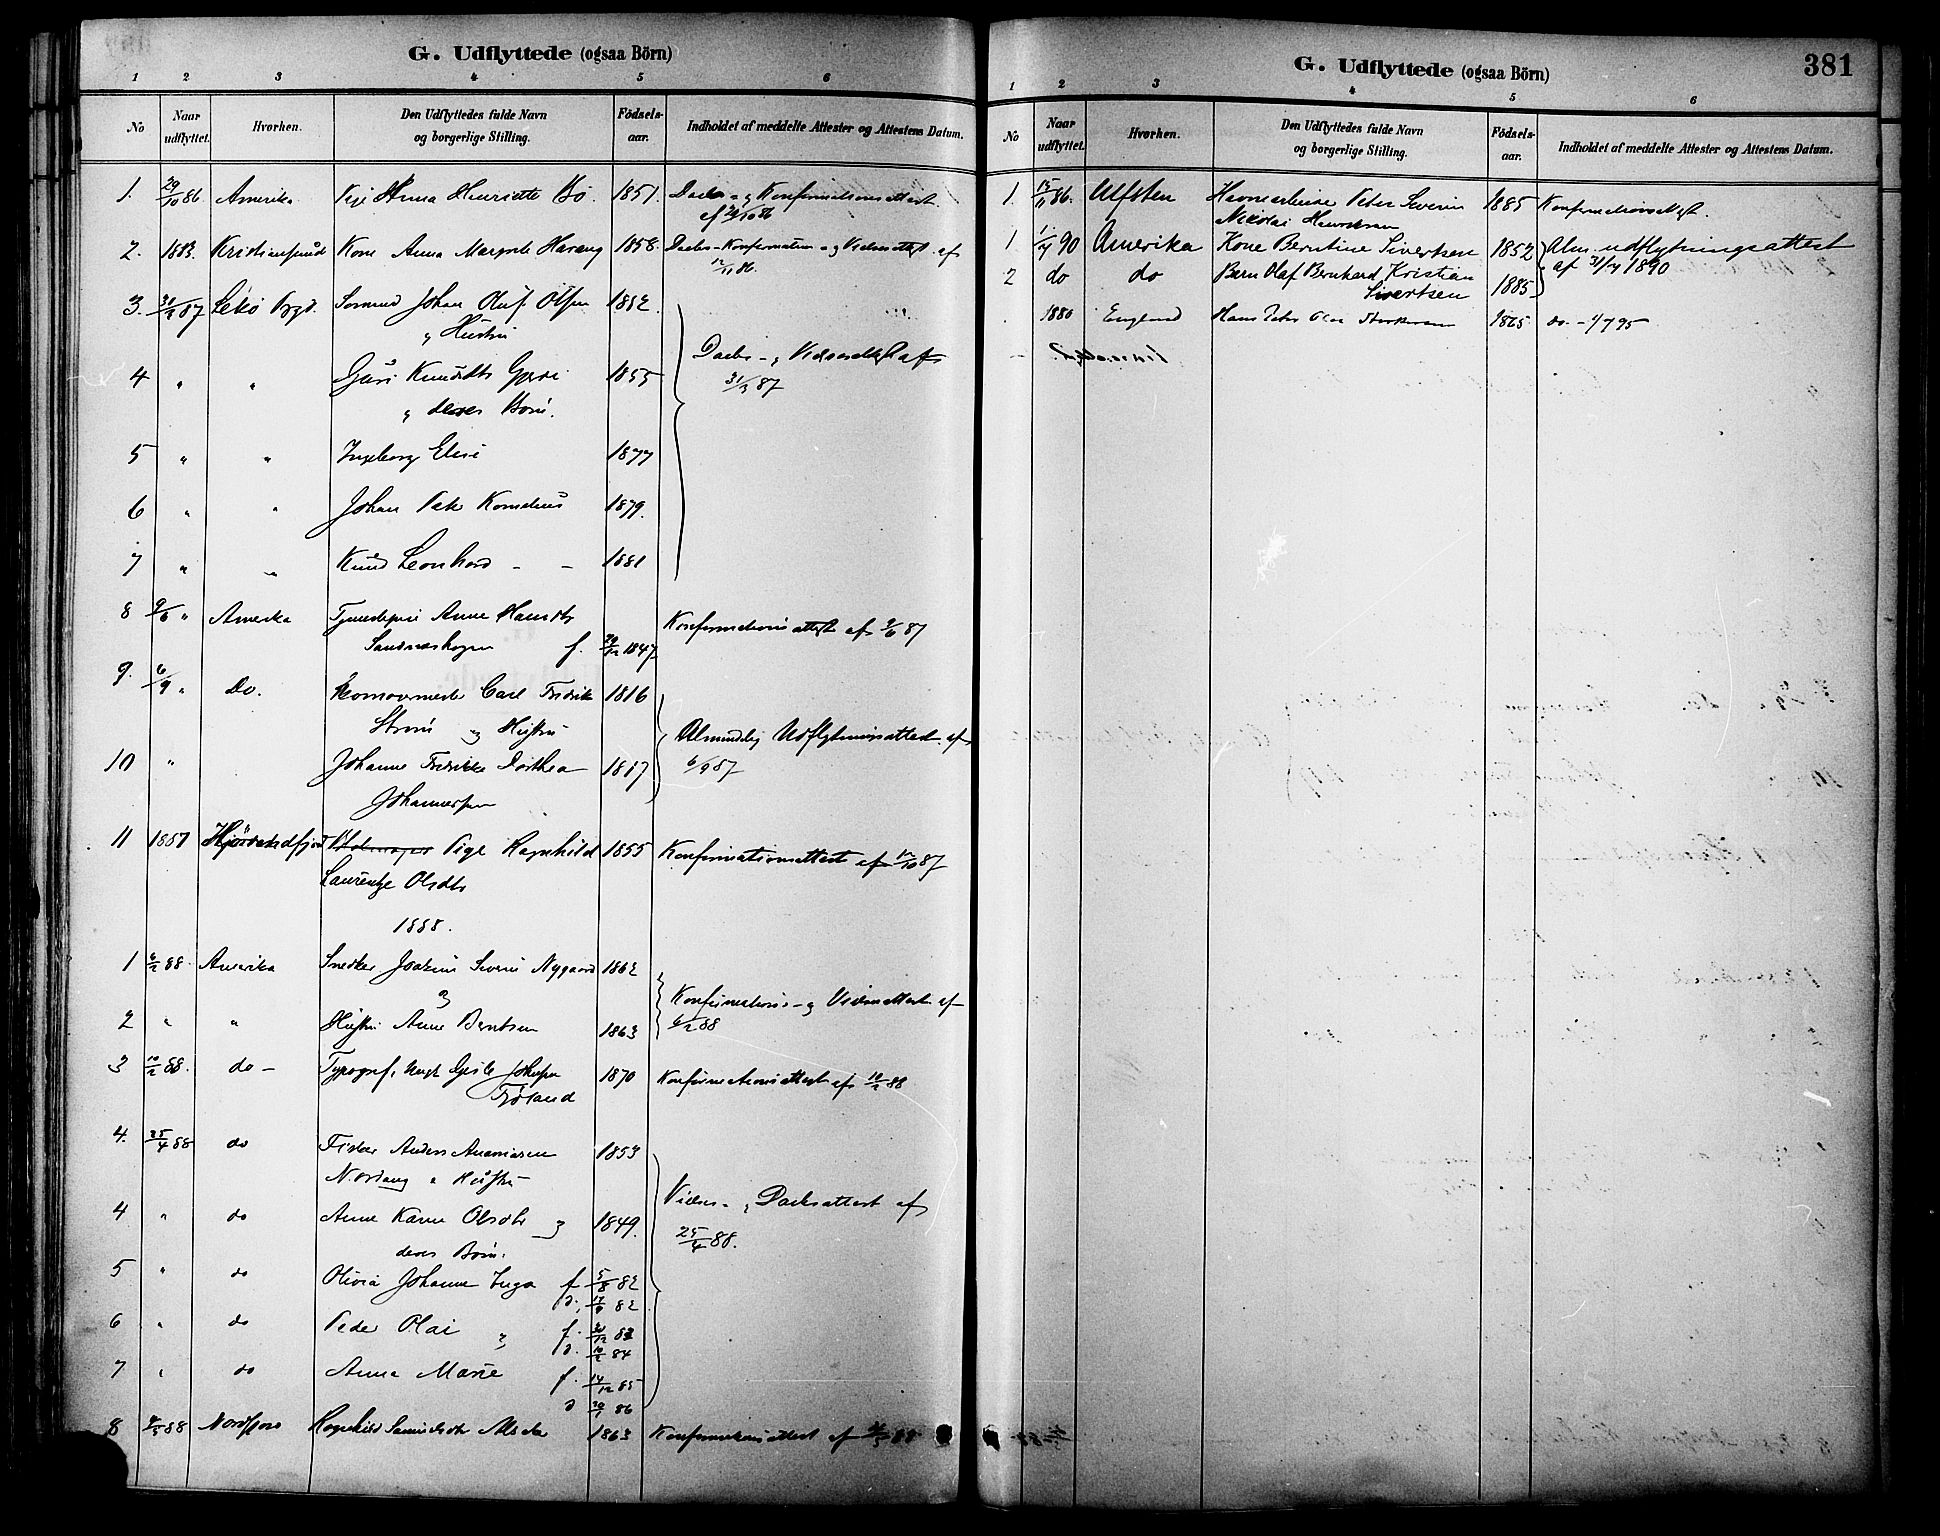 G. Udflyttede (ogsaa Börn)
1 2 3 4 5 6
No Naar udflyttet. Hvorhen. Den Udflyttedes fulde Navn og borgerlige Stilling. Födsels-aar. Indholdet af meddelte Attester og Attestens Datum.
1. 29/10 86 Amerika Pige Anna Henriette Bö. 1851. Daabs- og Konfirmationsattest
af 29/10 86
2. 1883. Kristiansund Kone Anna Margrete Hareng 1858. Daabs- Konfirmation- og Vidneattest af
12/11 86.
3. 31/3 87 Lekö Prgd. Johan Oluf Olsen 1852.
og Hustru
4 " " Guri Knudsdtr 1855 Daabs- og Vidneattest af
31/3 87
og deres Börn.
5 " " Ingeborg Elise 1877
6 " " Johan Peter Kornelius 1879.
7 " " Knud Leonhard - - 1881
8 9/6 " Amerika Tjenestepige Anne Hansdtr Konfirmationsattest af 9/6 87
f. 29/12 1847
9. 6/9 " Do. Carl Fredrik 1816
Ström og Hustru Almindelig Udflytningsattest af
6/9 87
10 " Johanne Fredrikke Dorthea 1817
Johannessen
11 1887 Hjörundfjord Pige Ragnhild 1855 Konfirmationsattest af 12/10 87
Laurentze Olsdtr
1888.
1 6/2 88. Amerika Snedker Joakim Severin Nygaard 1862
og Konfirmations- og Vidneattest af
6/2 88
2 " " Hustru Anne Berntsen 1863
3 10/2 88. do - Typograf, 1870 Konfirmationsattest af 10/2 88
4. 25/4 88 do Fisker Anders Ananiasen 1853
Nordang og Hustru
4 " do Anne Karine Olsdtr og 1849. Vidne- og Daabsattest af
25/4 88.
deres Börn.
5 " do Olivia Johanne Inga f. 5/8 82
d. 17/9 82
6 " do Peder Olai og f. 30/12 83
d. 10/2 84
7 " do Anna Marie f. 14/12 85
d 20/1 86
8 4/5 88 Nordfjord Ragnhild 1863 Konfirmationsattest af 4/5 88
G. Udflyttede (ogsaa Börn)
381
1 2 3 4 5 6
No Naar udflyttet. Hvorhen. Den Udflyttedes fulde Navn og borgerlige Stilling. Födsels-aar. Indholdet af meddelte Attester og Attestens Datum.
1. 15/11 86. Ulfsten Peter Severin 1885 Konfirmationsattest.
Nikolai Henriksen
1 1/4 90 Amerika Kone Berntine Sivertsen 1852 Alm. udflytningsattest
2 do do Barn Olaf Bernhard Kristian af 31/4 1890
Sivertsen 1885
1880 England Hans Peter 1865 do. - 1/7 95